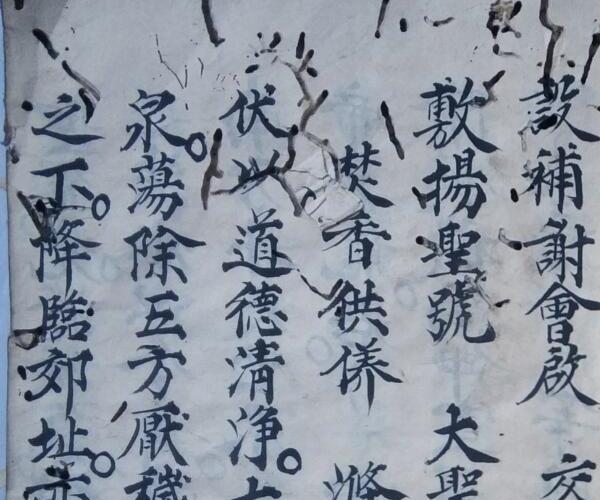 設補謝會啟
敷揚聖號 大聖
焚香供侢 滌
伏以道德清浄。
泉。蕩除五方厭穢
之下。降臨郊址。